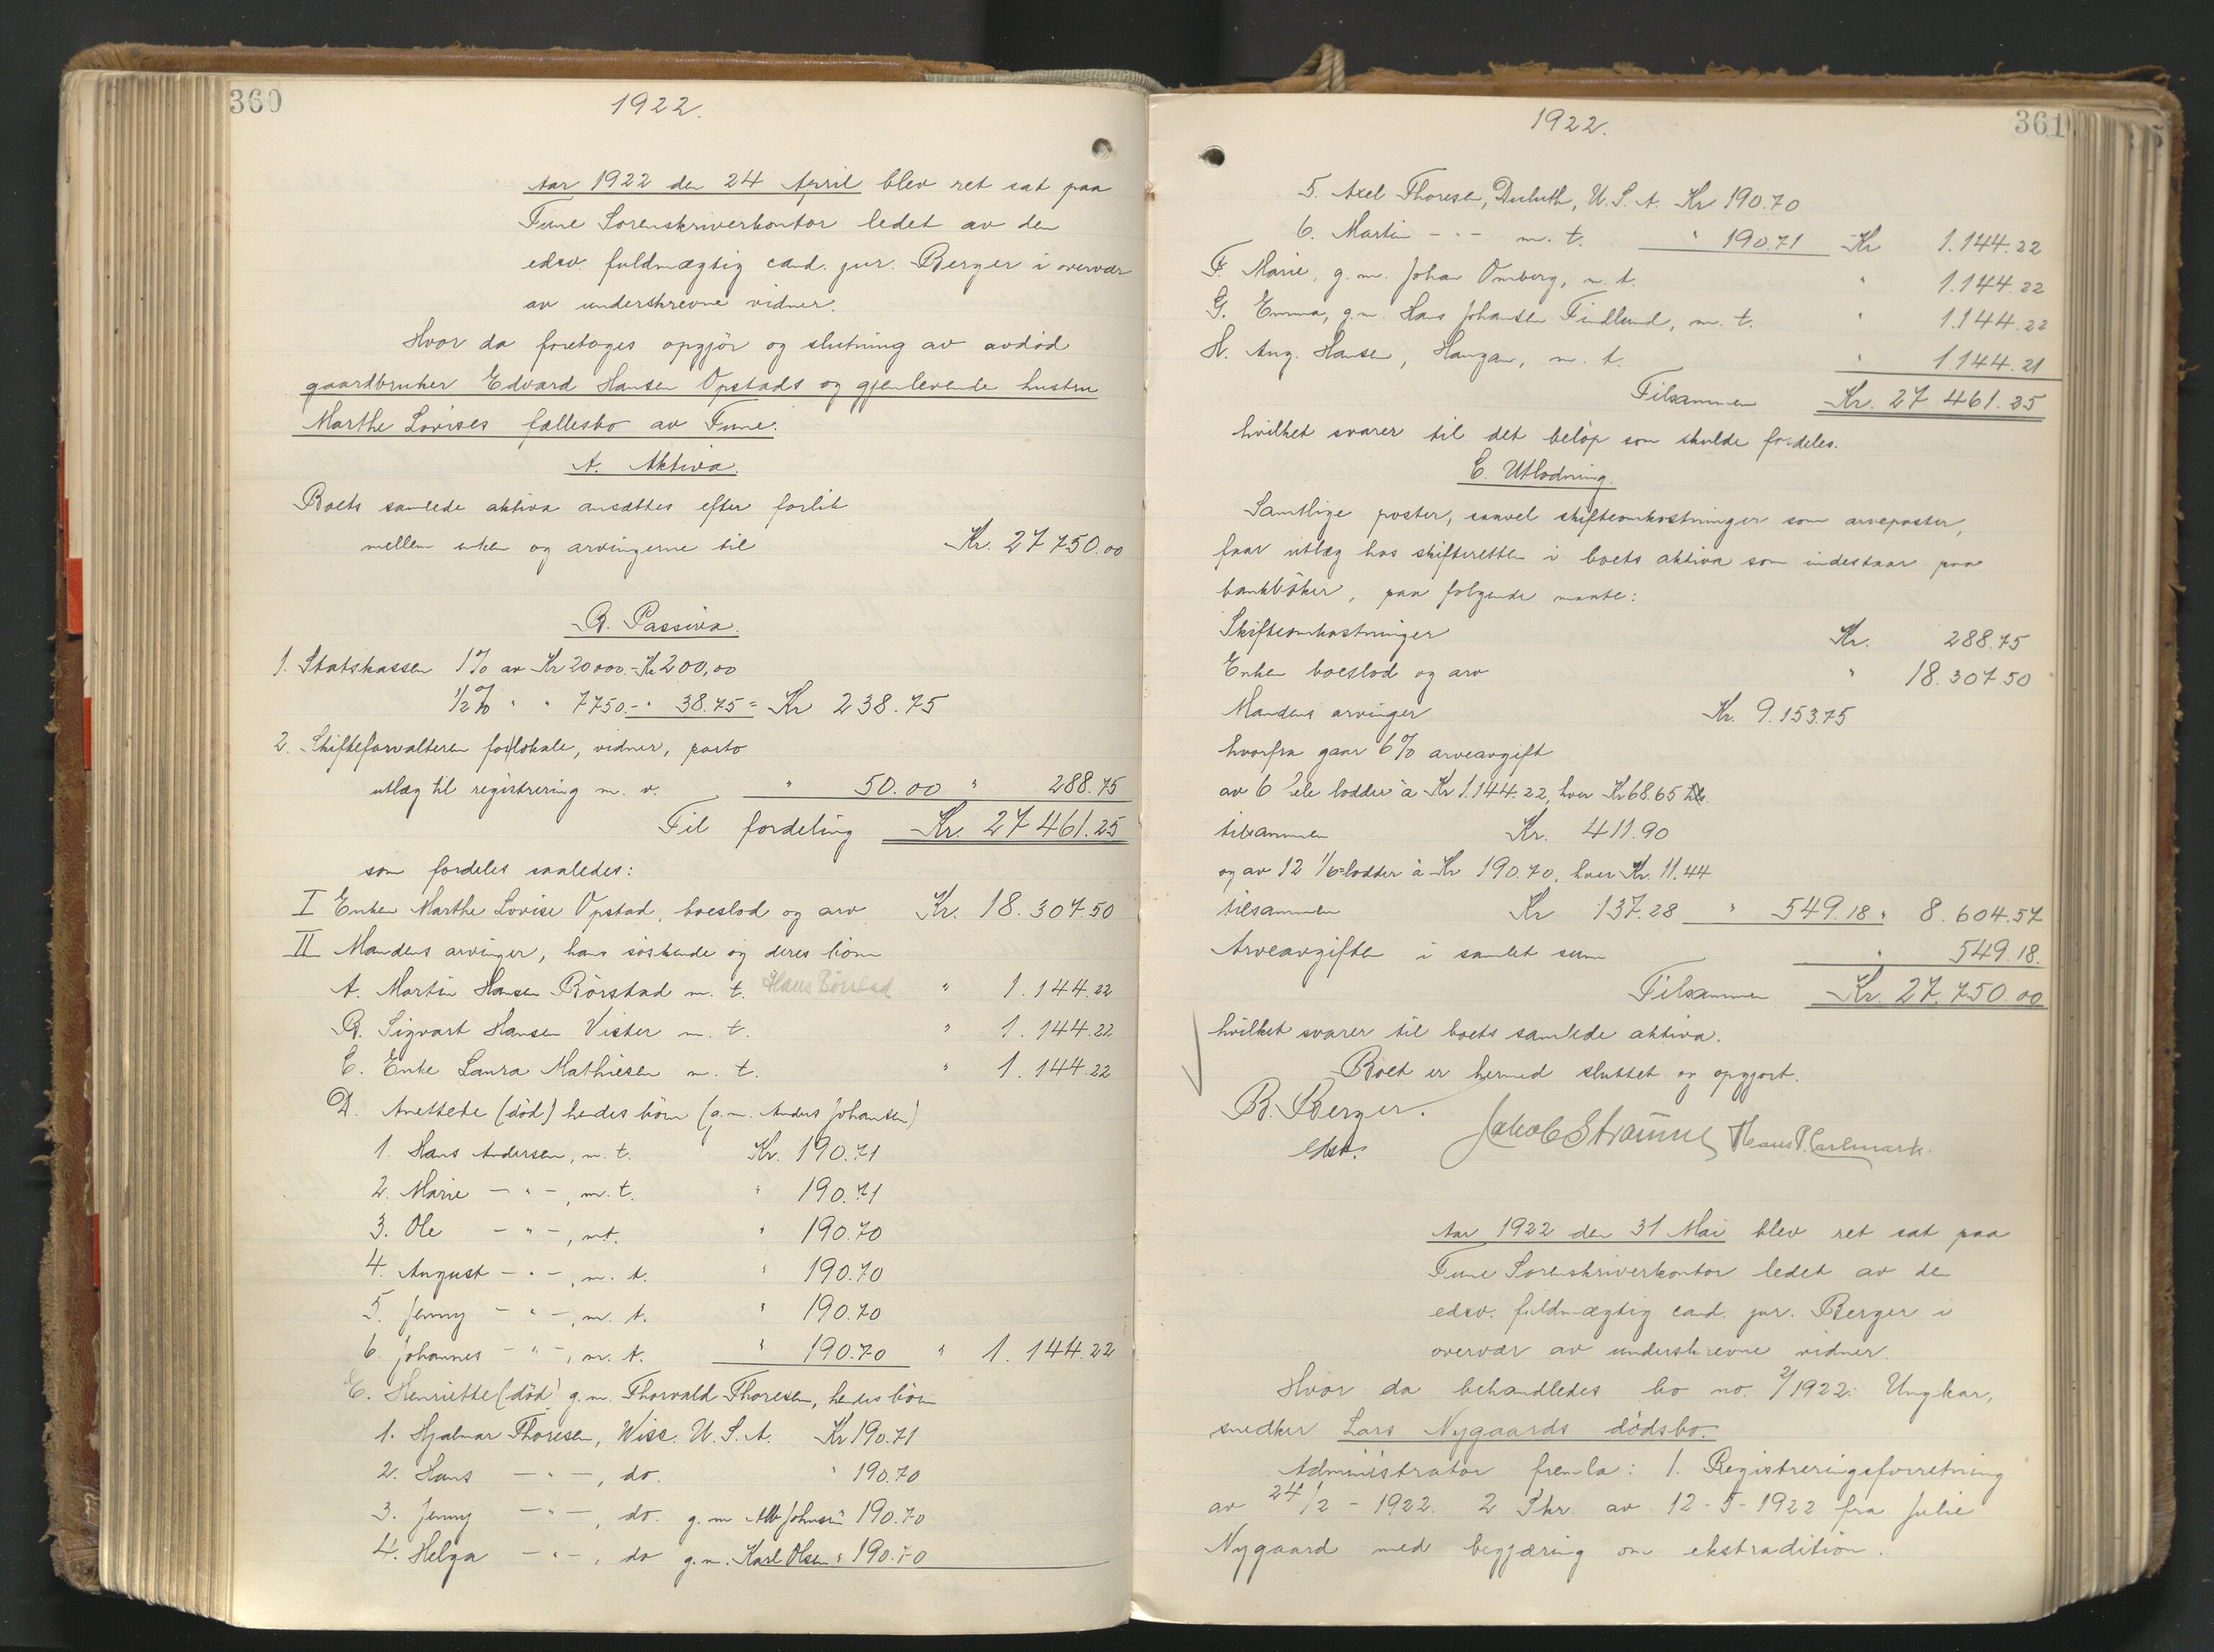 360
1922.
Aar 1922 den 24 April blev ret sat paa
Tune Sorenskriverkontor ledet av den
edsv. fuldmægtig cand. jur. Berger i overvær
av underskrevne vidner.
Hvor da foretoges opgjör og slutning av avdöd
gaardbruker Edvard Hansen Opstads og gjenlevende hustru
Marthe Lovises fællesbo av Tune.
A. Aktiva.
Boets samlede aktiva ansættes efter forlik
mellem enken og arvingerne til Kr. 27 750.00
B. Passiva.
1. Statskassen 1% av Kr 20000.- Kr 200,00
1/2% " " 7750.- " 38.75 = Kr 238.75
2. Skifteforvalteren for lokale, vidner, porto
utlæg til registrering m. v. " 50.00 " 288.75
Til fordeling Kr. 27 461.25
som fordeles saaledes:
I Enken Marthe Lovise Opstad, boeslod og arv Kr. 18.307.50
II Mandens arvinger, hans söskende og deres börn
A. Martin Hansen Börstad m. t. Hans Börstad " 1.144.22
B. Sigvart Hansen Vister m. t. " 1.144.22
C. Enke Laura Mathiesen m. t. " 1.144.22
D. Anettete (död) hendes börn (g.m. Anders Johansen)
1. Hans Andersen, m. t. Kr. 190.71
2. Marie - " -, m. t. " 190.71
3. Ole - " -, m.t. " 190.70
4. August - " -, m. t. " 190.70
5. Jenny - " -, m. t. " 190.70
6. Johannes - " -, m. t. " 190.70 " 1.144.22
E. Henriette (död) g.m. Thorvald Thoresen, hendes börn
1. Hjalmar Thoresen, Wisc. U.S.A. Kr 190.71
2. Hans - " -, do. " 190.70
3. Jenny - " -, do. g. m Alb Johnsen " 190.70
4. Helga - " -, do g.m. Karl Olsen " 190.70
361
1922.
5. Axel Thoresen, Duluth, U.S.A. Kr. 190.70
6. Martin - " - m. t. " 190.71 Kr 1.144.22
F. Marie, g.m. Johan Omberg, m. t. " 1.144.22
G. Emma, g.m. Hans Johansen Tindlund, m. t. " 1.144.22
H. Aug. Hansen, Haugan, m. t. " 1.144.21
Tilsammen Kr. 27 461.25
hvilket svarer til det belöp som skulde fordeles.
C. Utlodning.
Samtlige poster, saavel skifteomkostninger som arveposter,
faar utlæg hos skifteretten i boets aktiva som indestaar paa
bankböker, paa folgende maate:
Skifteomkostninger Kr. 288.75
Enken boeslod og arv " 18.307.50
Mandens arvinger Kr. 9.153.75
hvorfra gaar 6% arveavgift
av 6 hele lodder à Kr 1.144.22, hver Kr 68.65
tilsammen Kr. 411.90
og av 12 1/6-lodder à Kr 190.70, hver Kr. 11.44
tilsammen Kr 137.28 " 549.18 " 8.604.57
Arveavgiften i samlet sum " 549.18.
Tilsammen Kr. 27.750.00
hvilket svarer til boets samlede aktiva.
Boet er hermed sluttet og opgjort.
B. Berger.
edsv.
Jakob Strömme Hans P. Carlmark.
Aar 1922 den 31 Mai blev ret sat paa
Tune Sorenskriverkontor ledet av den
edsv. fuldmægtig cand. jur. Berger i
overvær av underskrevne vidner.
Hvor da behandledes bo no. 2/1922: Ungkar,
snedker Lars Nygaards dödsbo.
Administrator fremla: 1. Registreringsforretning
av 24/2 - 1922. 2 Skr. av 12-5-1922 fra Julie
Nygaard med begjæring om ekstradition.